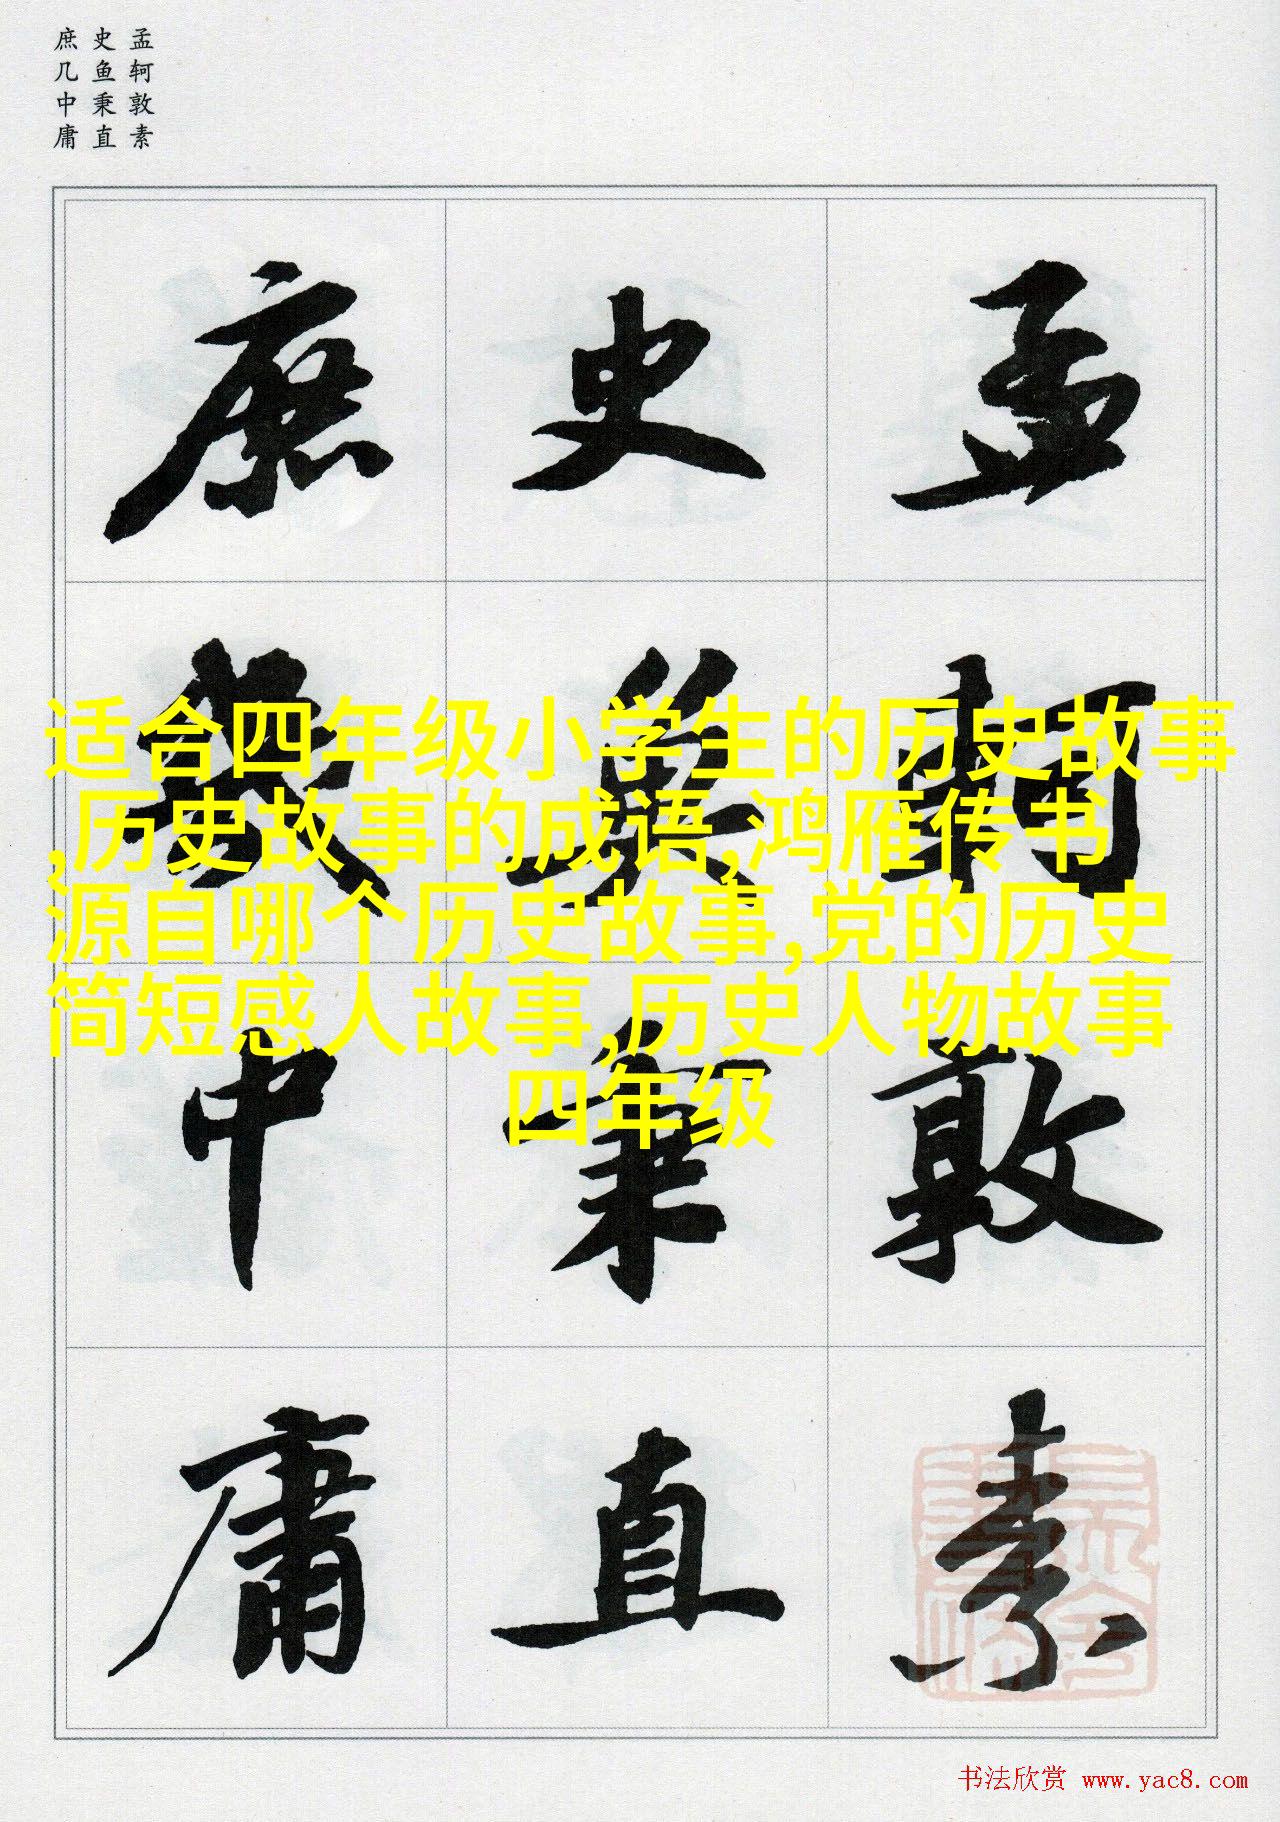 孟轲敦素
史鱼秉直
庶几中庸
孟軻敦素
史魚秉直
庶幾中庸
适合四年级小学生的历史故事
,历史故事的成语,鸿雁传书
源自哪个历史故事,党的历史
简短感人故事,历史人物故事
四年级
书法欣赏 www.yac8.com